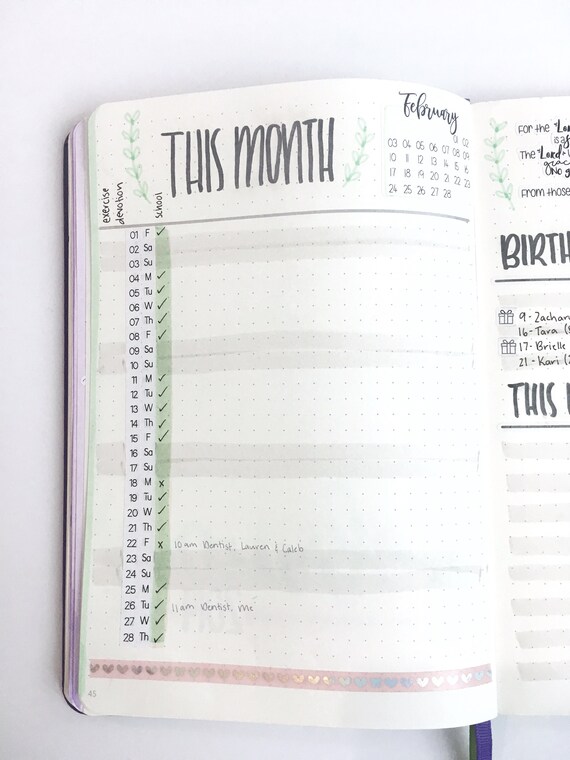 THIS MONTH
February
01 02
03 04 05 06 07 08 09
10 11 12 13 14 15 16
17 18 19 20 21 22 23
24 25 26 27 28
exercise
devotion
school
01 F ✓
02 Sa
03 Su
04 M ✓
05 Tu ✓
06 W ✓
07 Th ✓
08 F ✓
09 Sa
10 Su
11 M ✓
12 Tu ✓
13 W ✓
14 Th ✓
15 F ✓
16 Sa
17 Su
18 M x
19 Tu ✓
20 W ✓
21 Th ✓
22 F x 10am Dentist, Lauren & Caleb
23 Sa
24 Su
25 M ✓
26 Tu ✓ 11am Dentist, Me
27 W ✓
28 Th ✓
45
For the "Lord
is a
The "Lord"
grac
no g
From those
BIRTH
9- Zachar
16- Tara
17- Brielle
21- Kari
THIS